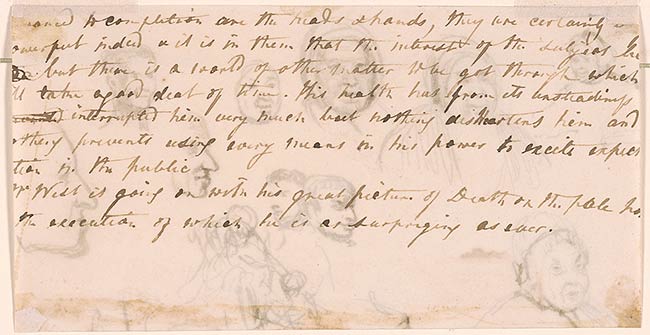 to completion are the heads & hands, they are certainly
indeed & it is in them that the interest of the subject
but there is a world of other matter to be got through which
take a good deal of time. His health has from its unsteadiness
interrupted him very much but nothing disheartens him and
prevents using every means in his power to excite expec
tion in the public
Mr West is going on with his great picture of Death on the pale ho
the execution of which he is as surprizing as ever.